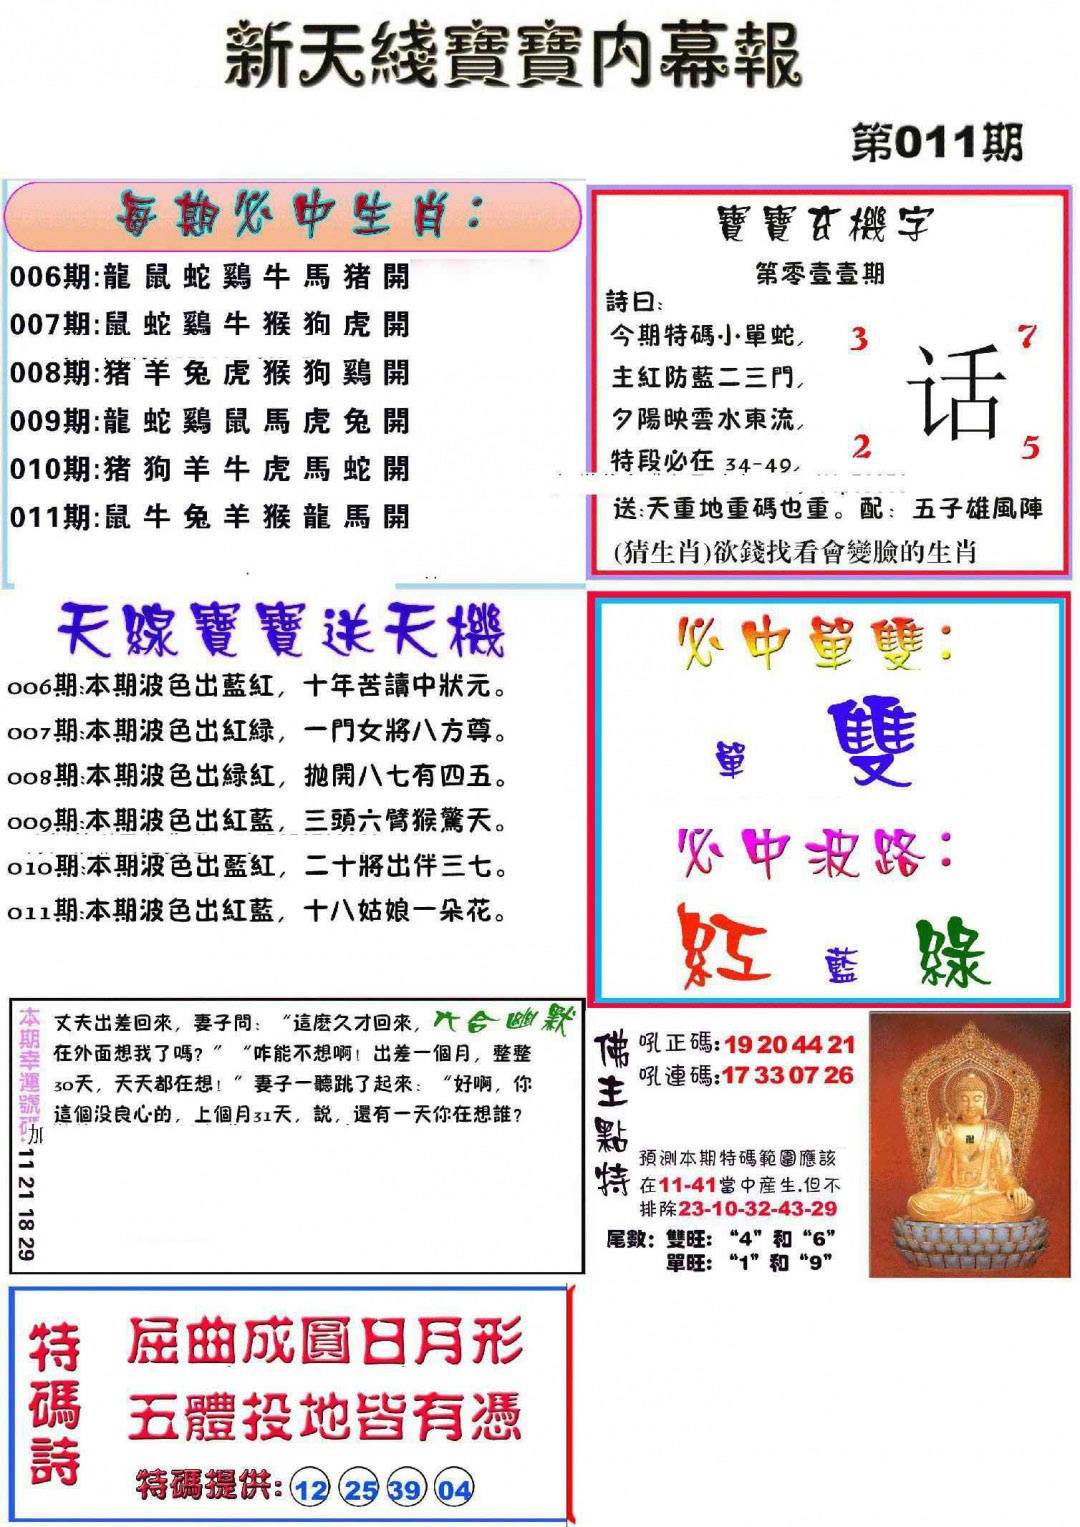 新天綫寶寶内幕報
第011期
每期必中生肖：
006期:龍鼠蛇鷄牛馬猪開
007期:鼠蛇鷄牛猴狗虎開
008期:猪羊兔虎猴狗鷄開
009期:龍蛇鷄鼠馬虎兔開
010期:猪狗羊牛虎馬蛇開
011期:鼠牛兔羊猴龍馬開
寶寶玄機字
第零壹壹期
詩曰:
今期特碼小單蛇,
主紅防藍二三門,
夕陽映雲水東流,
特段必在 34-49,
3
7
话
2
5
送:天重地重碼也重。配：五子雄風陣
(猜生肖)欲錢找看會變臉的生肖
天線寶寶送天機
006期:本期波色出藍紅，十年苦讀中狀元。
007期:本期波色出紅緑，一門女將八方尊。
008期:本期波色出緑紅，拋開八七有四五。
009期:本期波色出紅藍，三頭六臂猴驚天。
010期:本期波色出藍紅，二十將出伴三七。
011期:本期波色出紅藍，十八姑娘一朵花。
必中單雙：
單 雙
必中波路：
紅 藍 緑
本期幸運號碼:
加
11 21 18 29
六合幽默
丈夫出差回來，妻子問：“這麽久才回來，
在外面想我了嗎？”“咋能不想啊！出差一個月，整整
30天，天天都在想！”妻子一聽跳了起來：“好啊，你
這個没良心的，上個月31天，説，還有一天你在想誰？
佛主點特
吼正碼:19 20 44 21
吼連碼:17 33 07 26
預測本期特碼範圍應該
在11-41當中産生.但不
排除23-10-32-43-29
尾數：雙旺：“4”和“6”
單旺：“1”和“9”
特碼詩
屈曲成圓日月形
五體投地皆有憑
特碼提供: 12 25 39 04